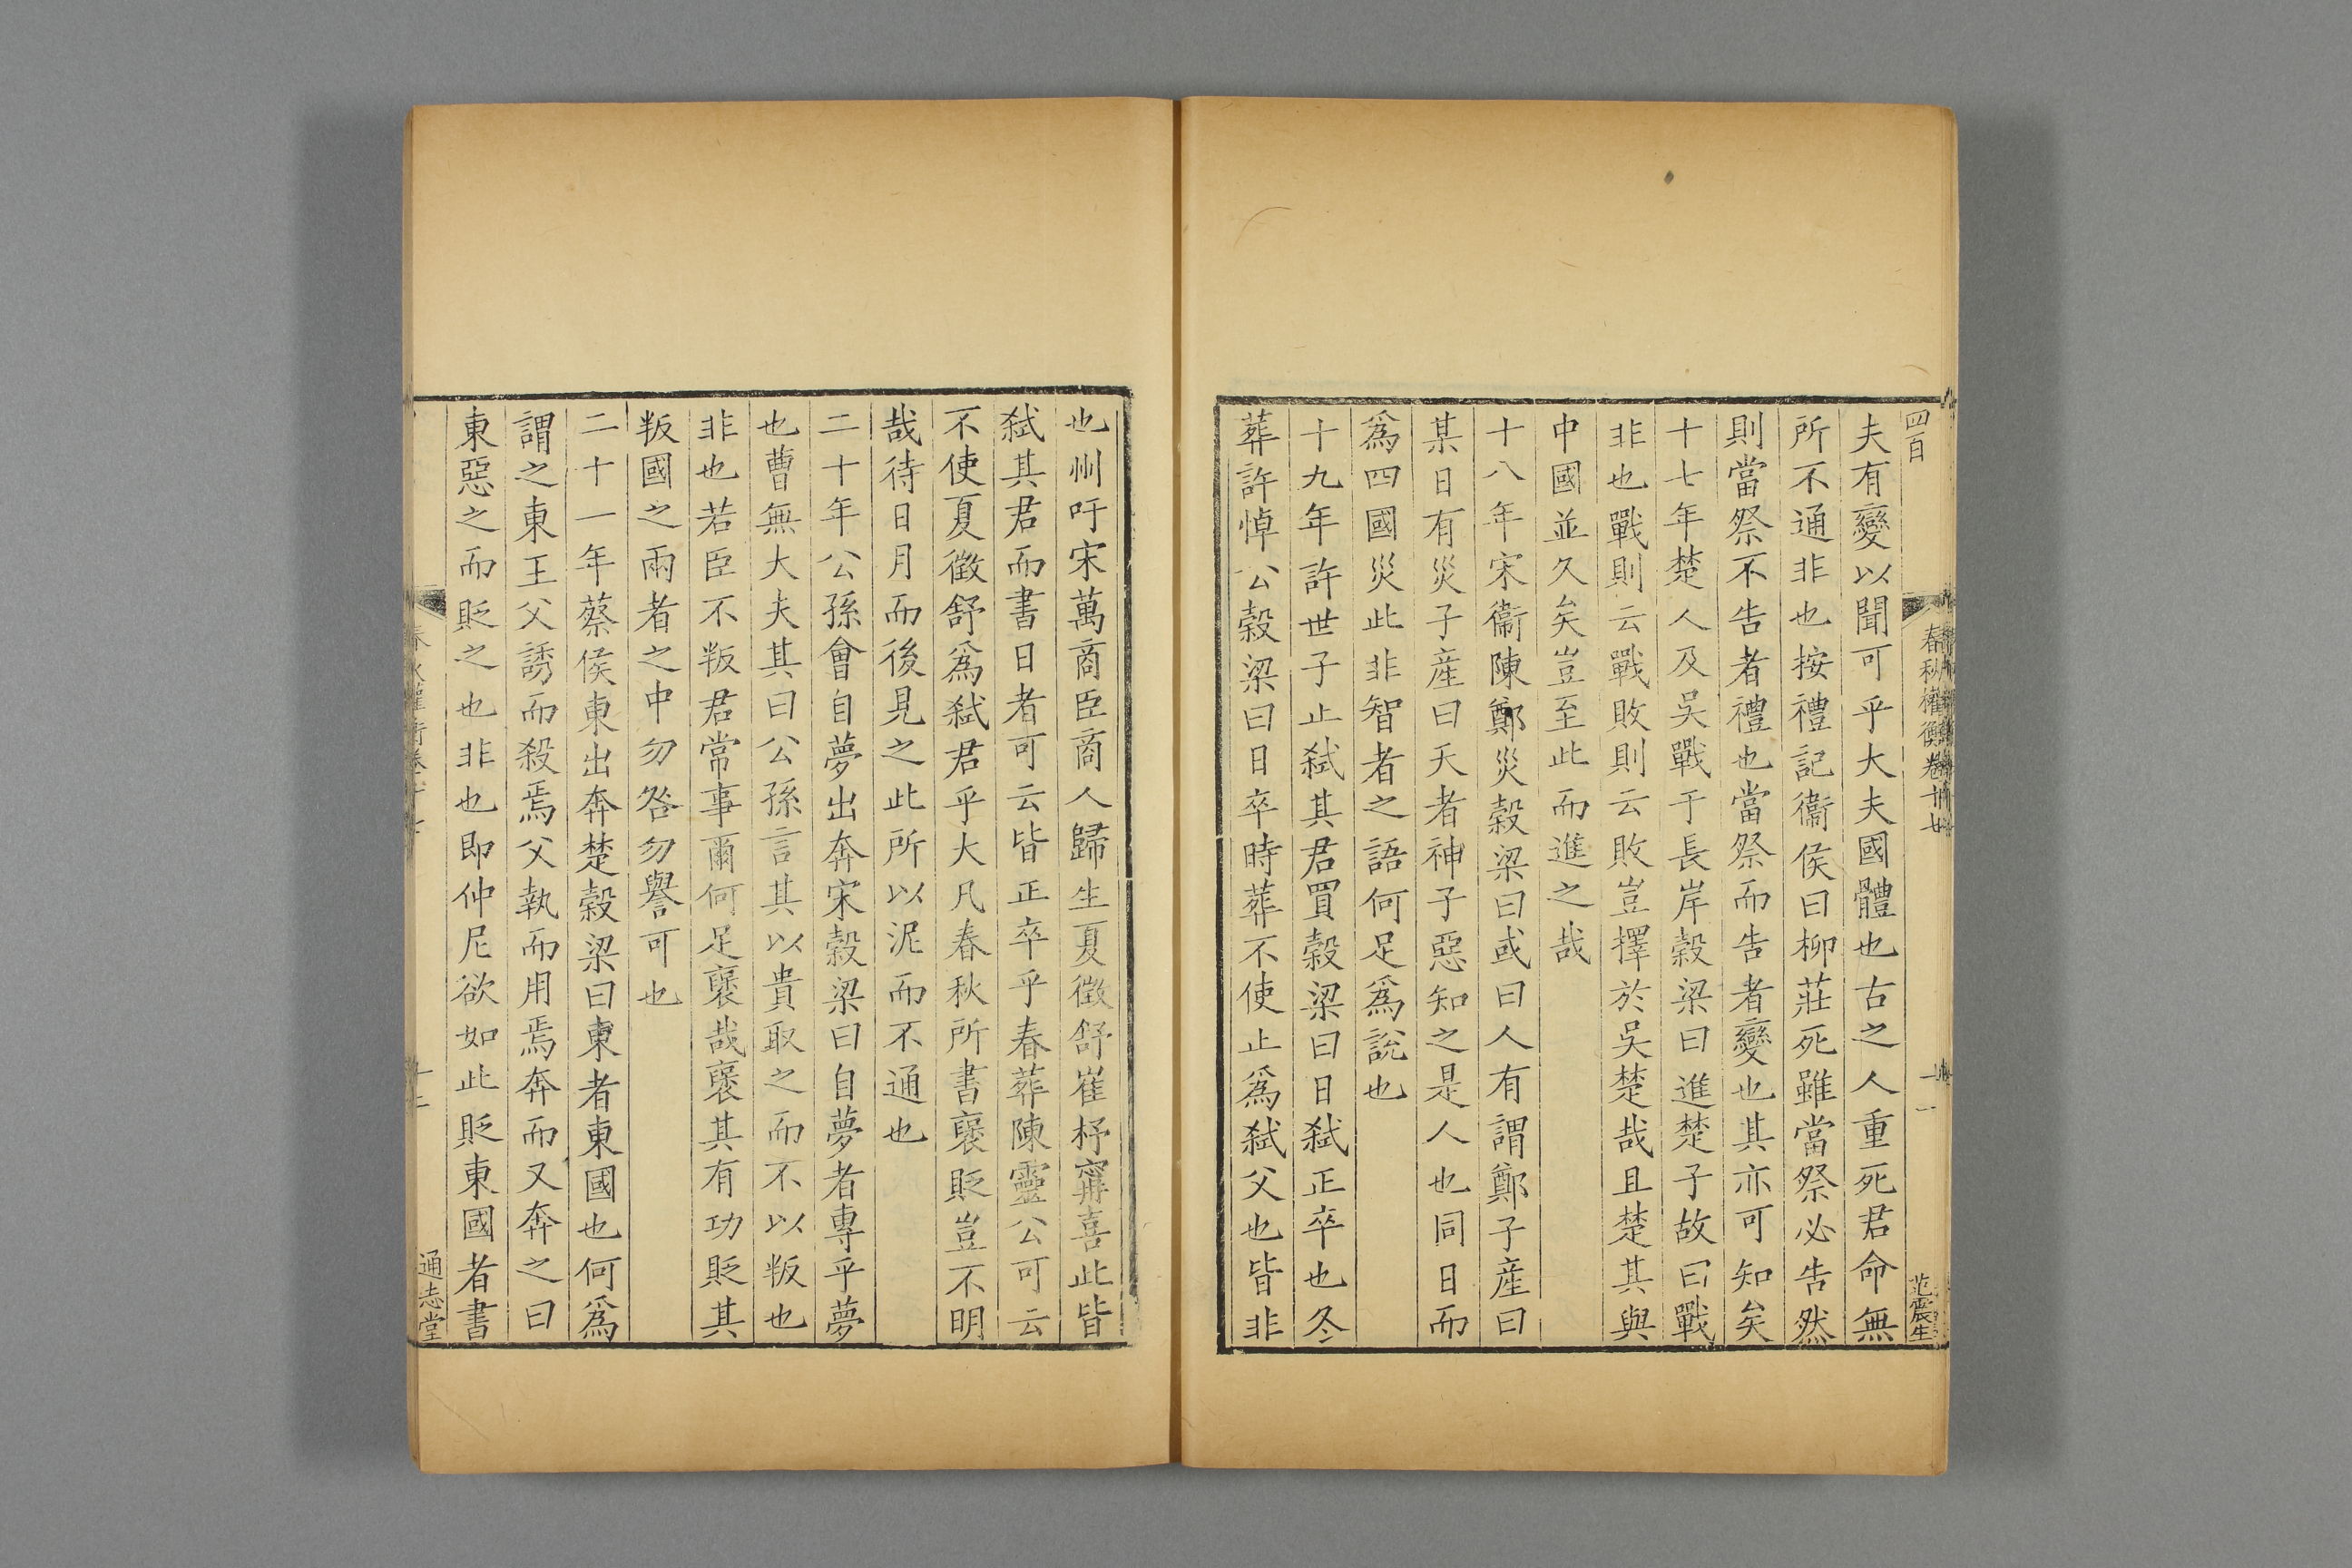 四百
春秋權衡卷十七
范震生
夫有變以聞可乎大夫國體也古之人重死君命無
所不通非也按禮記衞侯曰柳莊死雖當祭必告然
則當祭不告者禮也當祭而告者變也其亦可知矣
十七年楚人及吳戰于長岸穀梁曰進楚子故曰戰
非也戰則云戰敗則云敗豈擇於吳楚哉且楚其與
中國並久矣豈至此而進之哉
十八年宋衞陳鄭災穀梁曰或曰人有謂鄭子産曰
某日有災子産曰天者神子惡知之是人也同日而
爲四國災此非智者之語何足爲說也
十九年許世子止弑其君買穀梁曰日弑正卒也冬
葬許悼公穀梁曰日卒時葬不使止爲弑父也皆非
也州吁宋萬商臣商人歸生夏徵舒崔杼甯喜此皆
弑其君而書日者可云皆正卒乎春葬陳靈公可云
不使夏徵舒爲弑君乎大凡春秋所書襃貶豈不明
哉待日月而後見之此所以泥而不通也
二十年公孫會自夢出奔宋穀梁曰自夢者專乎夢
也曹無大夫其曰公孫言其以貴取之而不以叛也
非也若臣不叛君常事爾何足襃哉襃其有功貶其
叛國之兩者之中勿咎勿譽可也
二十一年蔡侯東出奔楚穀梁曰東者東國也何爲
謂之東王父誘而殺焉父執而用焉奔而又奔之曰
東惡之而貶之也非也即仲尼欲如此貶東國者書
通志堂